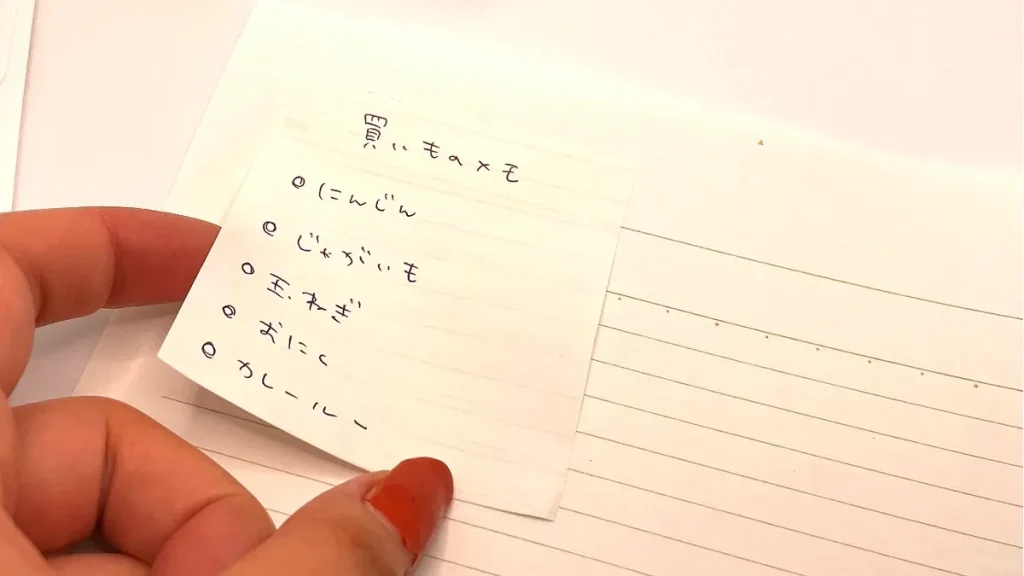 買いものメモ
◎にんじん
◎じゃがいも
○玉ねぎ
◎おにく
◎カレールー